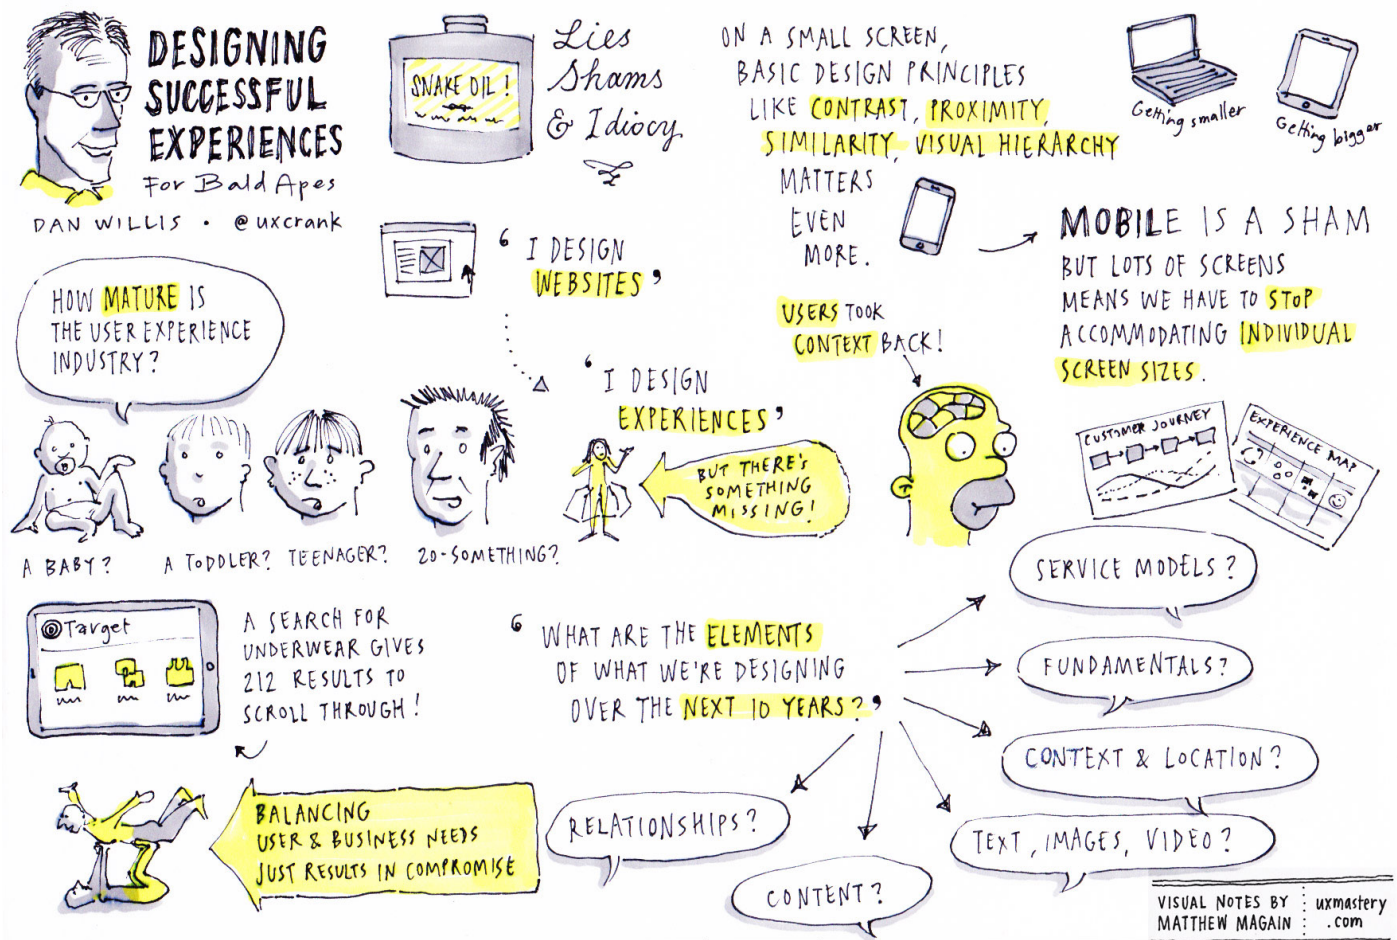 DESIGNING
SUCCESSFUL
EXPERIENCES
For Bald Apes
DAN WILLIS • @uxcrank
SNAKE OIL!
Lies
Shams
& Idiocy
ON A SMALL SCREEN,
BASIC DESIGN PRINCIPLES
LIKE CONTRAST, PROXIMITY,
SIMILARITY, VISUAL HIERARCHY
MATTERS
EVEN
MORE.
Getting smaller
Getting bigger
MOBILE IS A SHAM
BUT LOTS OF SCREENS
MEANS WE HAVE TO STOP
ACCOMMODATING INDIVIDUAL
SCREEN SIZES.
HOW MATURE IS
THE USER EXPERIENCE
INDUSTRY?
A BABY?
A TODDLER?
TEENAGER?
20-SOMETHING?
‘I DESIGN
WEBSITES’
‘I DESIGN
EXPERIENCES’
BUT THERE'S
SOMETHING
MISSING!
USERS TOOK
CONTEXT BACK!
CUSTOMER JOURNEY
EXPERIENCE MAP
Target
A SEARCH FOR
UNDERWEAR GIVES
212 RESULTS TO
SCROLL THROUGH!
BALANCING
USER & BUSINESS NEEDS
JUST RESULTS IN COMPROMISE
‘WHAT ARE THE ELEMENTS
OF WHAT WE'RE DESIGNING
OVER THE NEXT 10 YEARS?’
SERVICE MODELS?
FUNDAMENTALS?
CONTEXT & LOCATION?
TEXT, IMAGES, VIDEO?
CONTENT?
RELATIONSHIPS?
VISUAL NOTES BY
MATTHEW MAGAIN
uxmastery
.com